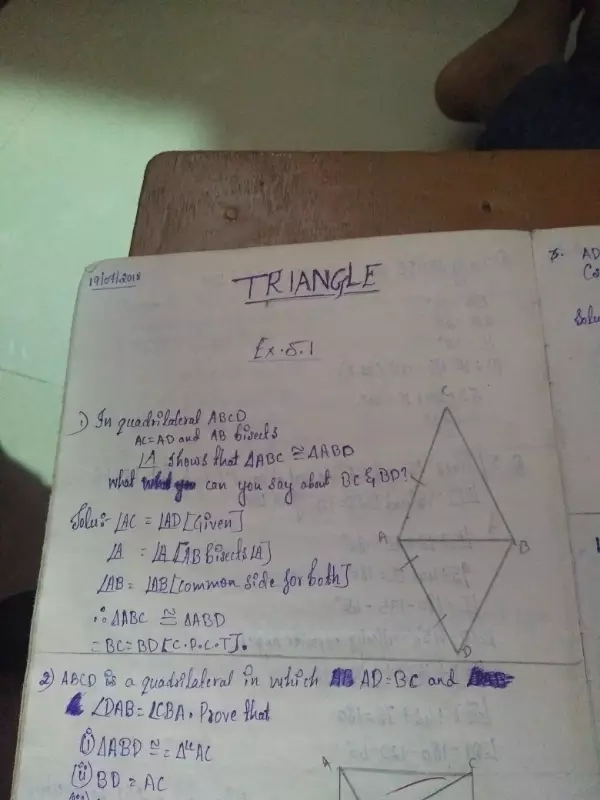 19/07/2018
TRIANGLE
Ex.5.1
1) In quadrilateral ABCD
AC=AD and AB bisects
∠A shows that ΔABC ≅ ΔABD
what can you say about BC & BD?
Solu:- ∠AC = ∠AD [Given]
∠A = ∠A [AB bisects ∠A]
∠AB = ∠AB [common side for both]
∴ ΔABC ≅ ΔABD
= BC = BD [C.P.C.T].
C
A
B
D
2) ABCD is a quadrilateral in which AD=BC and
∠DAB = ∠CBA. Prove that
(i) ΔABD ≅ = Δ AC
(ii) BD = AC
A
C
AD
Solu